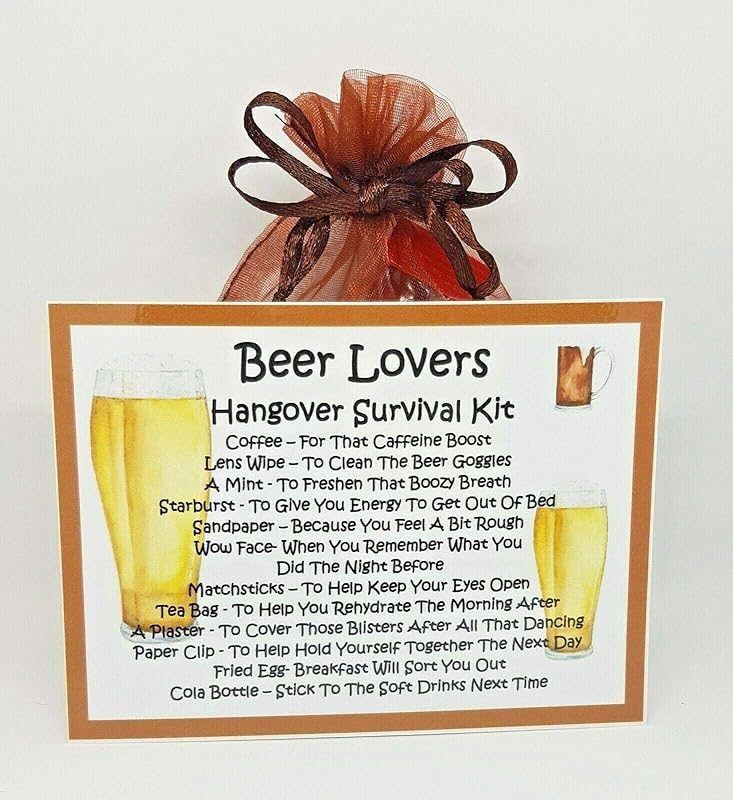 Beer Lovers
Hangover Survival Kit
Coffee – For That Caffeine Boost
Lens Wipe – To Clean The Beer Goggles
A Mint - To Freshen That Boozy Breath
Starburst - To Give You Energy To Get Out Of Bed
Sandpaper – Because You Feel A Bit Rough
Wow Face- When You Remember What You
Did The Night Before
Matchsticks – To Help Keep Your Eyes Open
Tea Bag - To Help You Rehydrate The Morning After
A Plaster - To Cover Those Blisters After All That Dancing
Paper Clip - To Help Hold Yourself Together The Next Day
Fried Egg- Breakfast Will Sort You Out
Cola Bottle – Stick To The Soft Drinks Next Time